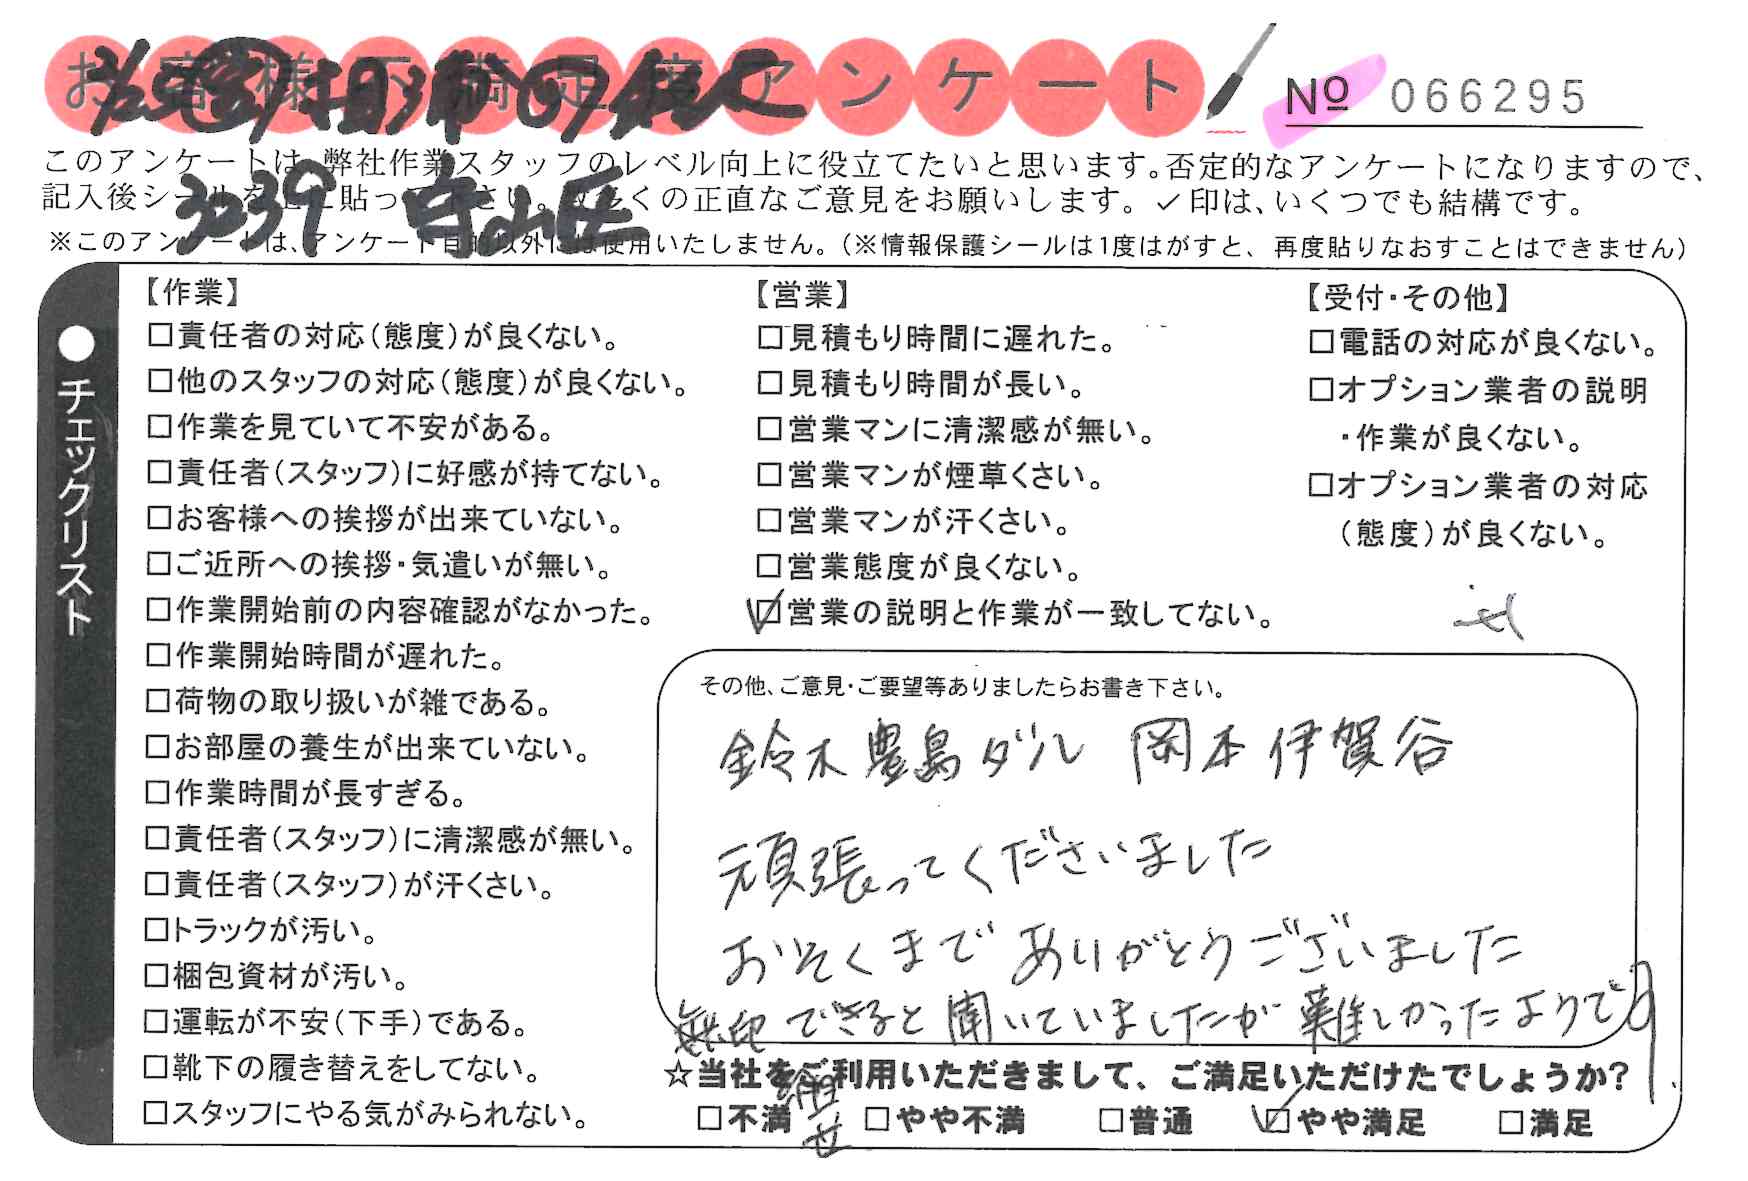 お客様不満足度アンケート
№ 066295
このアンケートは、弊社作業スタッフのレベル向上に役立てたいと思います。否定的なアンケートになりますので、
記入後シールを上に貼って下さい。数多くの正直なご意見をお願いします。✓印は、いくつでも結構です。
3239 守山
※このアンケートは、アンケート目的以外には使用いたしません。(※情報保護シールは1度はがすと、再度貼りなおすことはできません)
●チェックリスト
【作業】
□責任者の対応(態度)が良くない。
□他のスタッフの対応(態度)が良くない。
□作業を見ていて不安がある。
□責任者(スタッフ)に好感が持てない。
□お客様への挨拶が出来ていない。
□ご近所への挨拶・気遣いが無い。
□作業開始前の内容確認がなかった。
□作業開始時間が遅れた。
□荷物の取り扱いが雑である。
□お部屋の養生が出来ていない。
□作業時間が長すぎる。
□責任者(スタッフ)に清潔感が無い。
□責任者(スタッフ)が汗くさい。
□トラックが汚い。
□梱包資材が汚い。
□運転が不安(下手)である。
□靴下の履き替えをしてない。
□スタッフにやる気がみられない。
【営業】
□見積もり時間に遅れた。
□見積もり時間が長い。
□営業マンに清潔感が無い。
□営業マンが煙草くさい。
□営業マンが汗くさい。
□営業態度が良くない。
☑営業の説明と作業が一致してない。
【受付・その他】
□電話の対応が良くない。
□オプション業者の説明
・作業が良くない。
□オプション業者の対応
(態度)が良くない。
その他、ご意見・ご要望等ありましたらお書き下さい。
鈴木 豊島 ダル 岡本 伊賀谷
頑張ってくださいました
おそくまで ありがとうございました
無印 できると聞いていましたが 難しかったようです。
☆当社をご利用いただきまして、ご満足いただけたでしょうか?
□不満 □やや不満 □普通 ☑やや満足 □満足